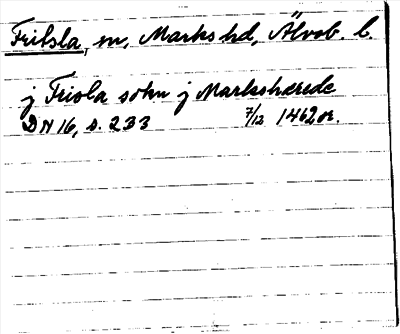 Fritsla, sn, Marks hd, Älvsb. l.
j Friola sokn j Marksherede
DN 16, s. 233 7/12 1462 or.